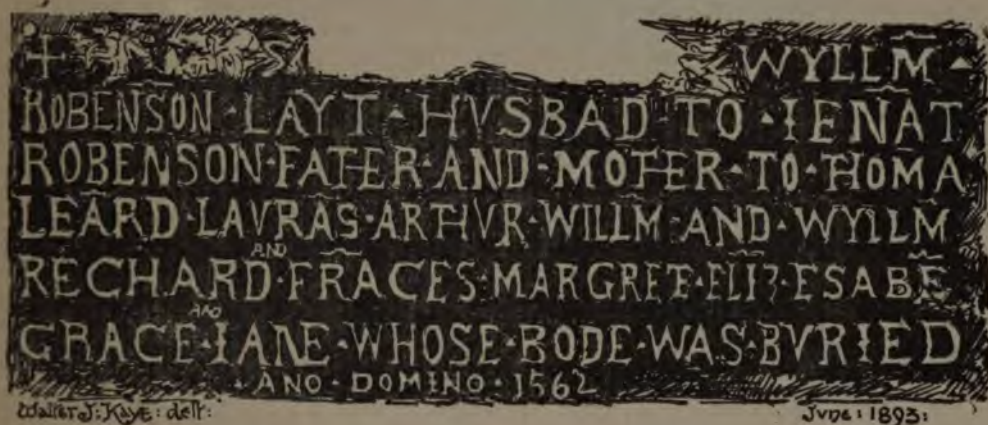 + WYLLM̄ ·
ROBENSON · LAYT · HVSBAD · TO · IENAT
ROBENSON · FATER · AND · MOTER · TO · THOMA
LEARD · LAVRAS · ARTHVR · WILLM · AND · WYLLM
AND
RECHARD · FRACES · MARGRET · ELIZ · ESABE
AND
GRACE · IANE · WHOSE · BODE · WAS · BVRIED
· ANO · DOMINO · 1562
Walter J: Kaye: delt: Jvne: 1893: